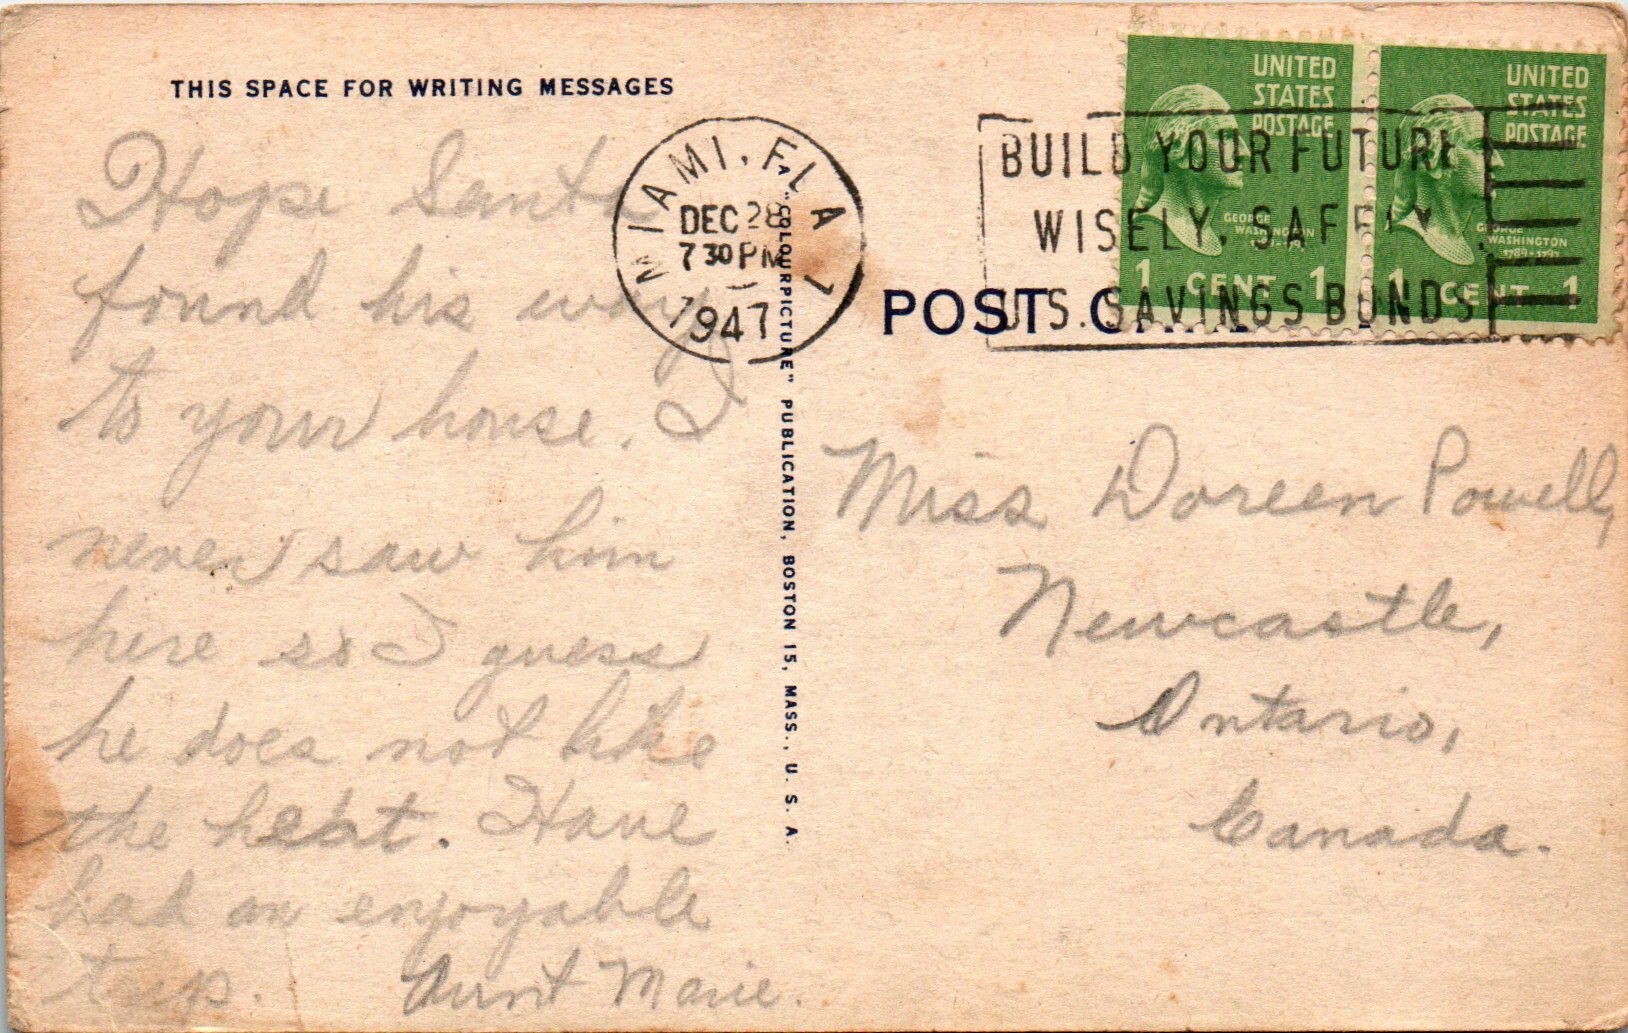 THIS SPACE FOR WRITING MESSAGES
Hope Santa
found his way
to your house. I
never saw him
here so I guess
he does not like
the heat. Have
had an enjoyable
trip. Aunt Marie.
MIAMI, FLA 7
DEC 28
7 30 PM
1947
A "COLOURPICTURE" PUBLICATION, BOSTON 15, MASS., U. S. A.
BUILD YOUR FUTURE
WISELY, SAFELY
U.S. SAVINGS BONDS
UNITED
STATES
POSTAGE
GEORGE
WASHINGTON
1789-1797
1 CENT 1
UNITED
STATES
POSTAGE
GEORGE
WASHINGTON
1789-1797
1 CENT 1
POST CARD
Miss Doreen Powell,
Newcastle,
Ontario,
Canada.